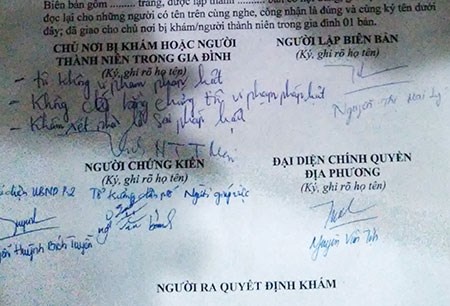 Biên bản gồm ........ trang, được lập thành
đọc lại cho những người có tên trên cùng nghe, công nhận là đúng và cùng ký tên dưới
đây; đã giao cho chủ nơi bị khám/người thành niên trong gia đình 01 bản.
CHỦ NƠI BỊ KHÁM HOẶC NGƯỜI
THÀNH NIÊN TRONG GIA ĐÌNH
(Ký, ghi rõ họ tên)
NGƯỜI LẬP BIÊN BẢN
(Ký, ghi rõ họ tên)
- Tôi không vi phạm pháp luật
- Không bằng chứng tôi vi phạm pháp luật
- Khám xét sai pháp luật
Nguyễn Thị
NTT
NGƯỜI CHỨNG KIẾN
(Ký, ghi rõ họ tên)
ĐẠI DIỆN CHÍNH QUYỀN
ĐỊA PHƯƠNG
(Ký, ghi rõ họ tên)
diện UBND P2 Tổ trưởng dân phố
Huỳnh Bích Tuyền
Nguyễn Văn
NGƯỜI RA QUYẾT ĐỊNH KHÁM